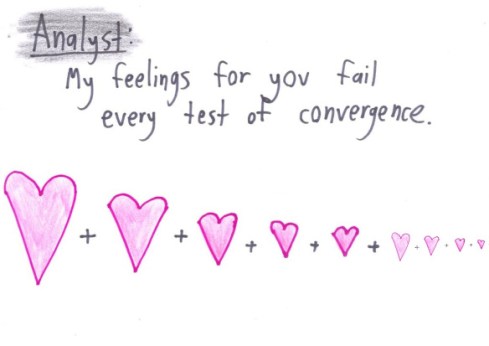 Analyst:
My feelings for you fail
every test of convergence.
+ + + + + + + +